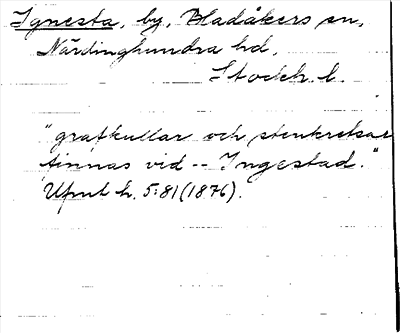 Ignesta, by, Bladåkers sn,
Närdinghundra hd,
Stockh. l.
"grafkullar och stenkretsar
finnas vid -- Ingestad."
Upml h. 5:81 (1876).